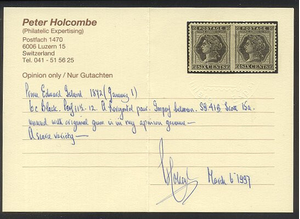 Peter Holcombe
(Philatelic Expertising)
Postfach 1470
6006 Luzern 15
Switzerland
Tel. 041 - 51 56 25
Opinion only / Nur Gutachten
SIX CENTS SIX CENTS
Prince Edward Island 1872 (January 1)
6c Black. Perf 11½-12. A horizontal pair. Imperf between. SG 41
used with original gum is in my opinion genuine -
A scarce variety -
March 6 1997